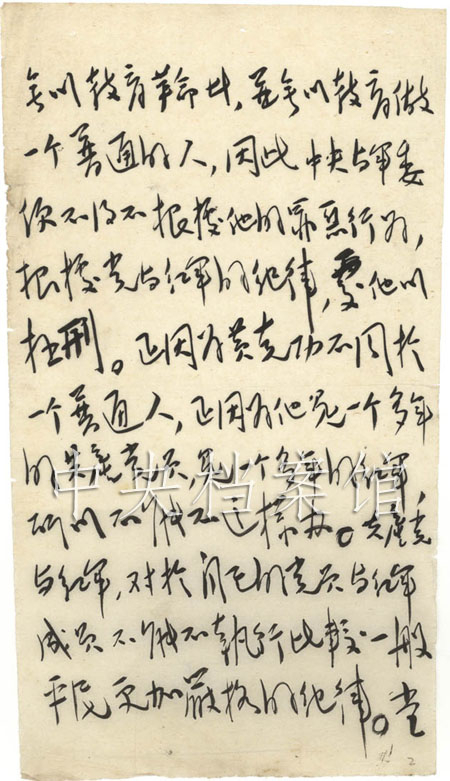 无以教育革命者,並无以教育做
一个普通的人,因此中央与军委
便不得不根據他的罪惡行为,
根據党与红军的纪律,處他以
极刑。正因为黄克功不同於
一个普通人,正因为他是一个多年
的共產党员,是一个多年的红军,
中央档案馆
所以不能不这样办。共產党
与红军,对於自己的党员与红军
成员不能不執行比較一般
平民更加嚴格的纪律。当
2